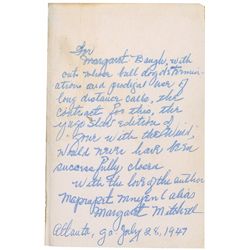 For
Margaret Baugh, with
out whose bull dog determin-
ations and prodigal use of
long distance calls, the
contract for this, the
Yugo Slav edition of
Gone with the Wind,
would never have been
successfully closed
with the love of the author
(alias
Margaret Mitchell
Atlanta, Ga July 28, 1947